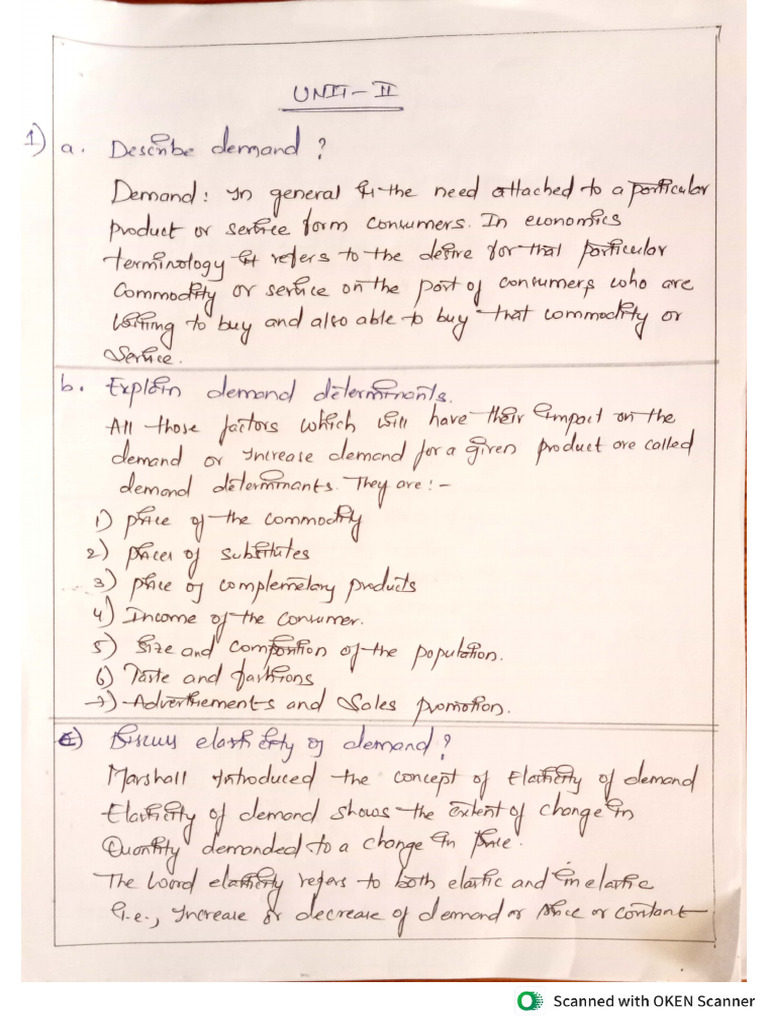 UNIT-II
1) a. Describe demand?
Demand: In general it the need attached to a particular
product or service form consumers. In economics
terminology it refers to the desire for that particular
Commodity or service on the part of consumers who are
willing to buy and also able to buy that commodity or
Service.
b. Explain demand determinants.
All those factors which will have their impact on the
demand or increase demand for a given product are called
demand determinants. They are:-
1) price of the commodity
2) prices of substitutes
3) price of complemetary products
4) Income of the Consumer.
5) Size and composition of the population.
6) Taste and fashions
7) Advertisements and Sales promotion.
c) Discuss elasticity of demand?
Marshall introduced the concept of Elasticity of demand
Elasticity of demand shows the extent of change in
Quantity demanded to a change in price.
The word elasticity refers to both elastic and in elastic
i.e., increase or decrease of demand or price or contant
Scanned with OKEN Scanner